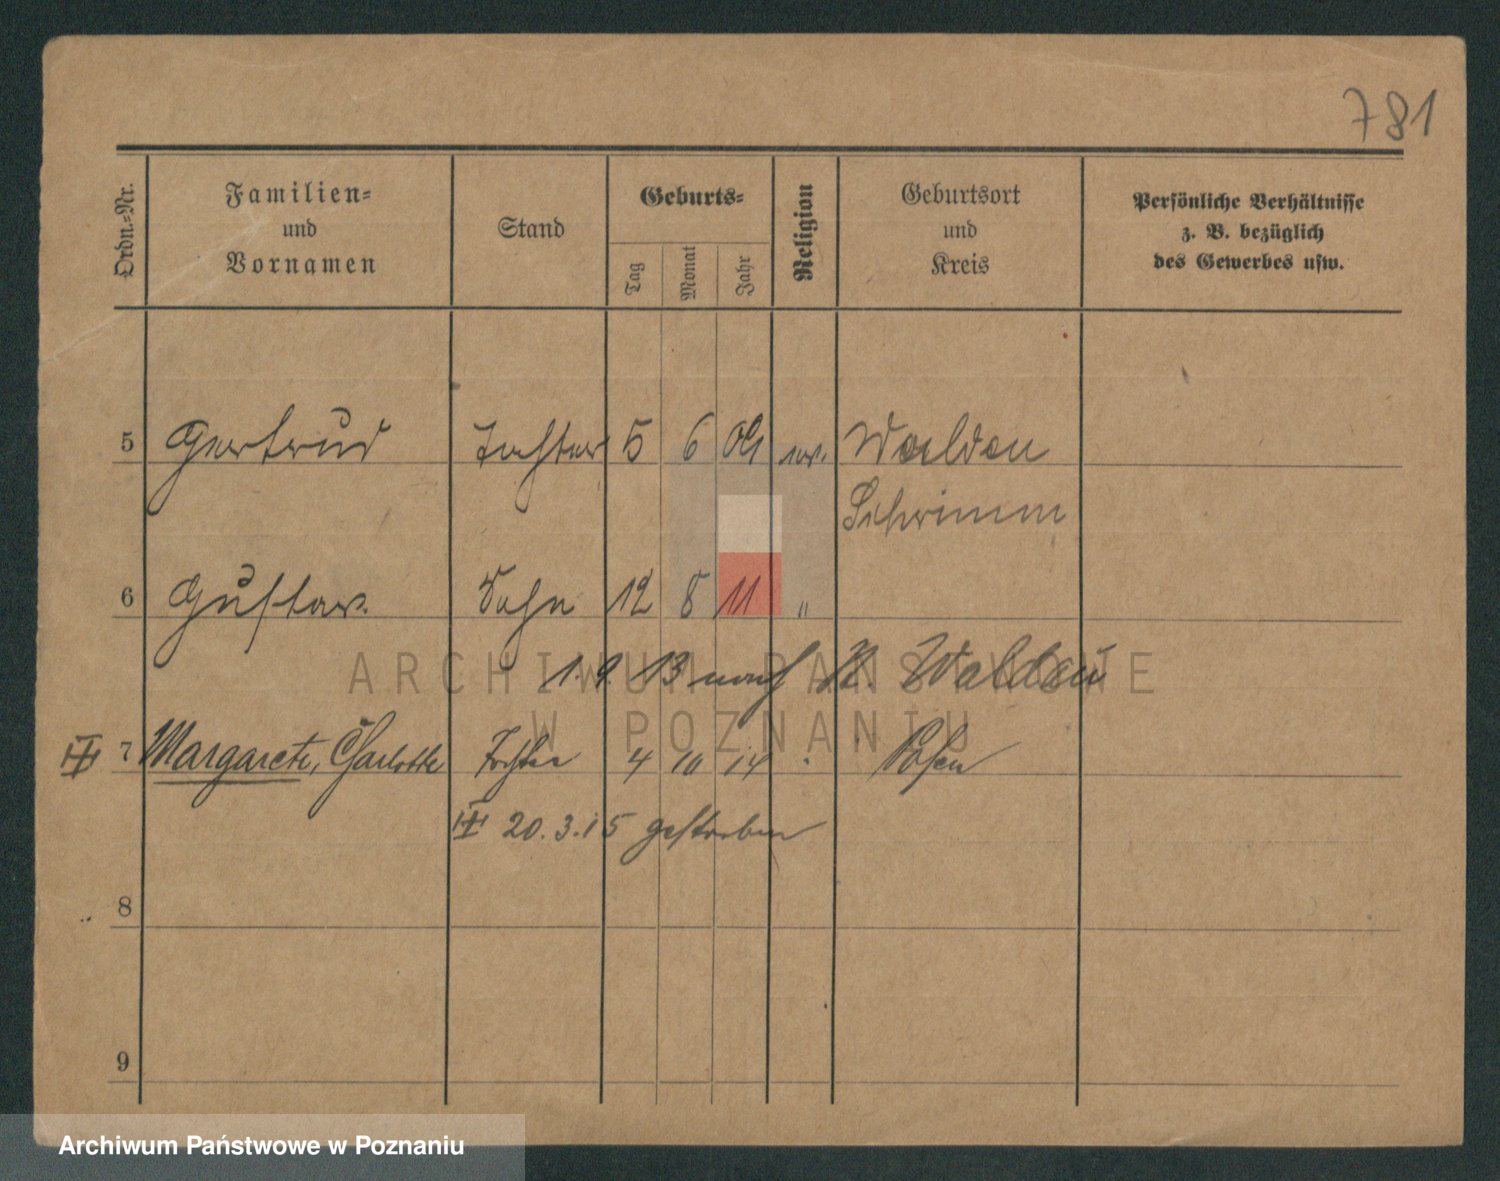 781
Ordn.-Nr.
Familien-
und
Vornamen
Stand
Geburts-
Tag
Monat
Jahr
Religion
Geburtsort
und
Kreis
Persönliche Verhältnisse
z. B. bezüglich
des Gewerbes usw.
5 Gertrud Tochter 5 6 09 ev. Walden
Schrimm
6 Gustav Sohn 12 8 11 "
1.9.13 nach N. Waldau
III 7 Margarete, Charlotte Tochter 4 10 14 Posen
III 20.3.15 gestorben
8
9
ARCHIWUM PAŃSTWOWE
W POZNANIU
Archiwum Państwowe w Poznaniu